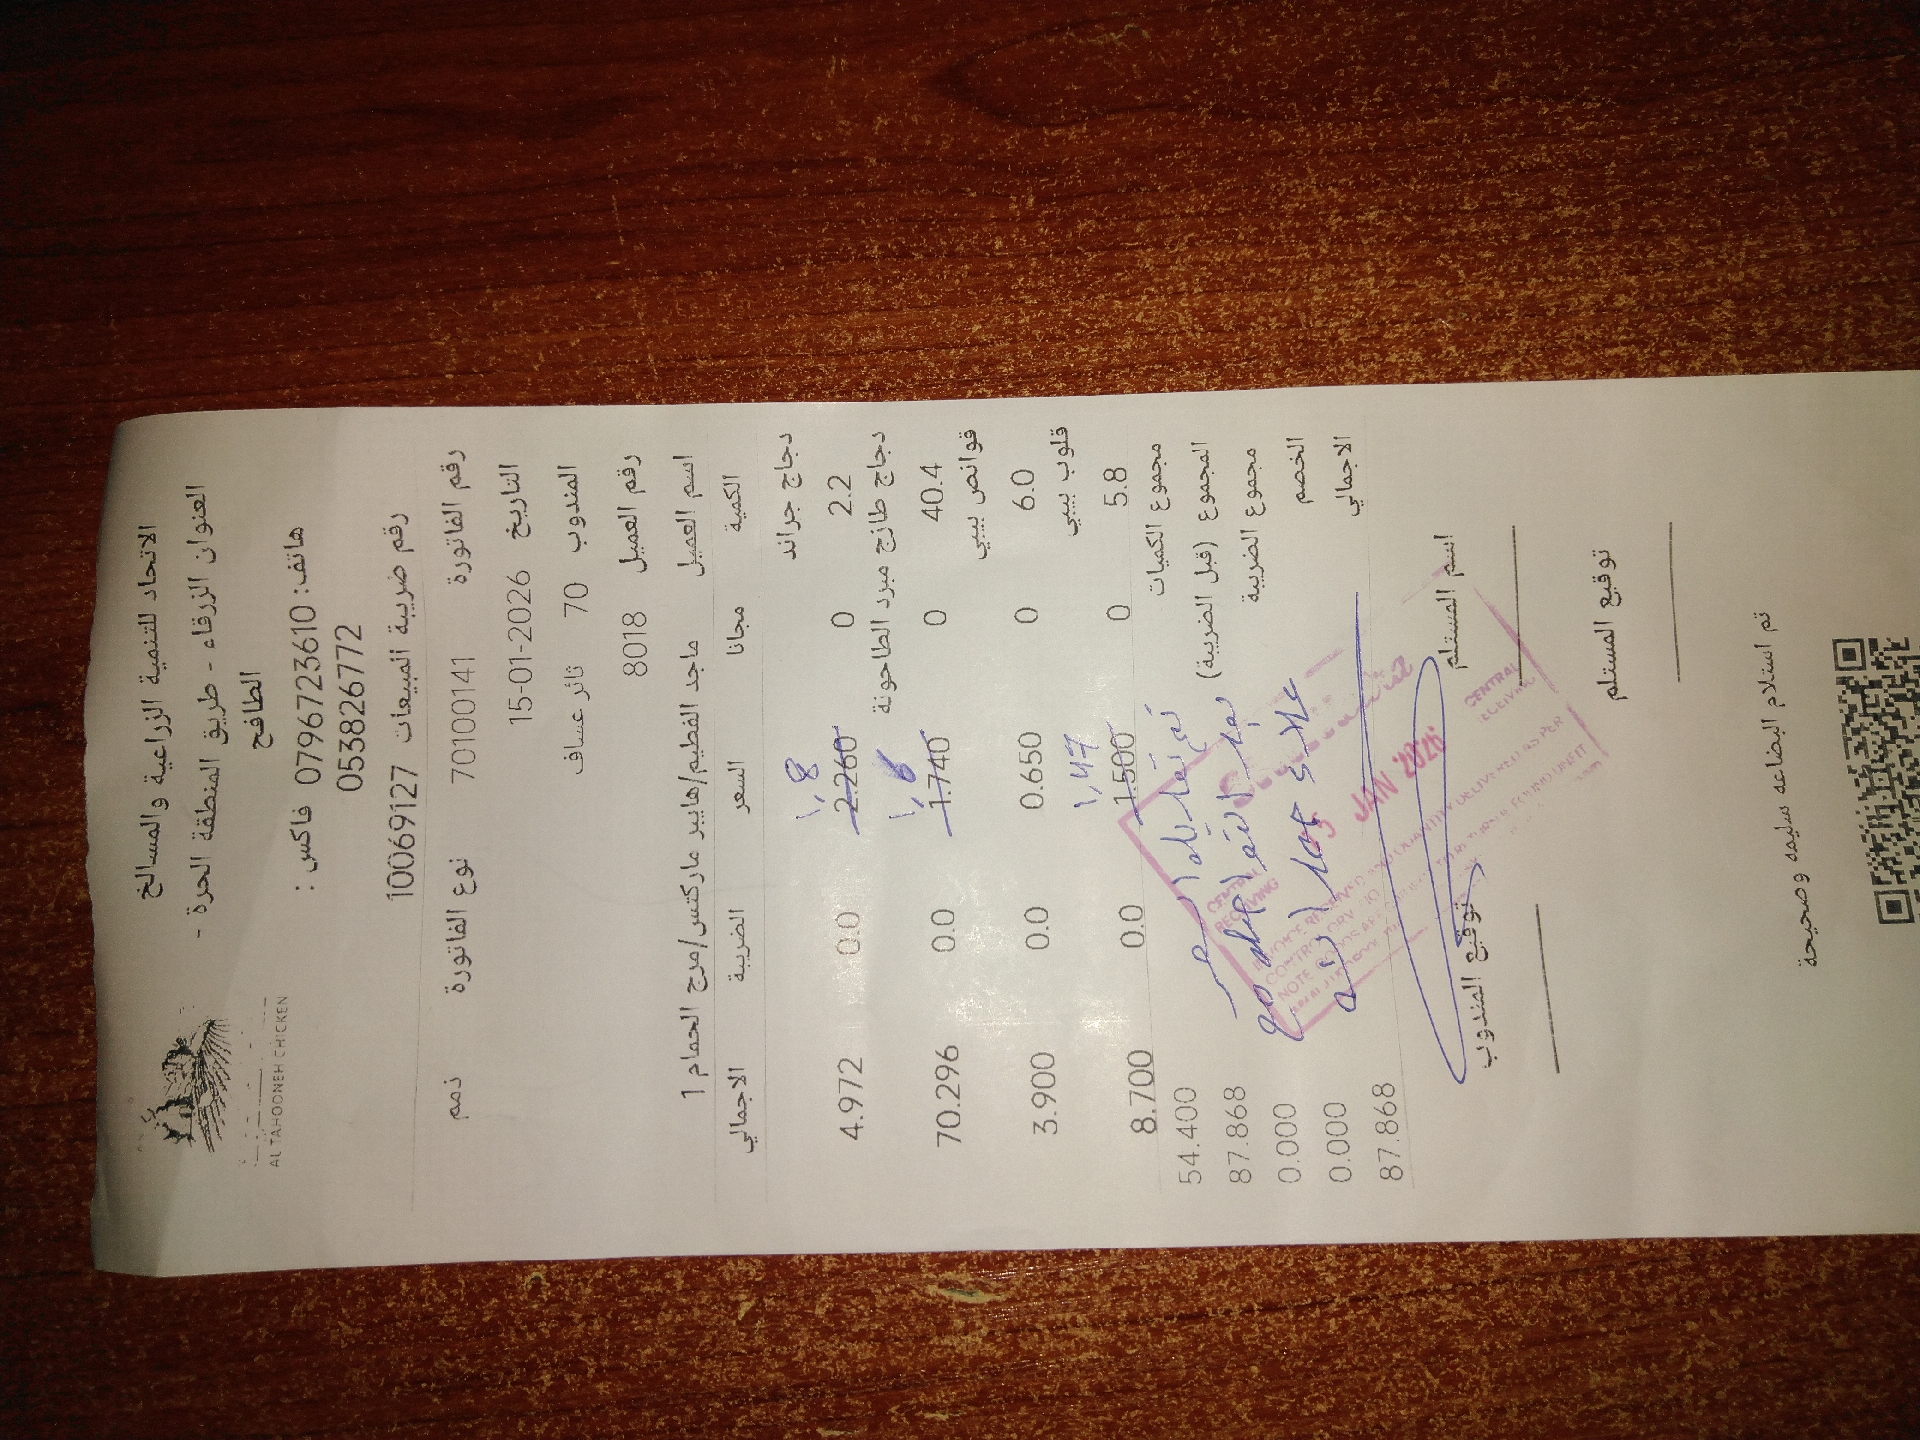 AL TAHOONEH CHICKEN
الاتحاد للتنمية الزراعية والمسالخ
العنوان الزرقاء - طريق المنطقة الحرة -
الطافح
هاتف: 0796723610 فاكس :
053826772
رقم ضريبة المبيعات 10069127
رقم الفاتورة 70100141 نوع الفاتورة ذمم
التاريخ 15-01-2026
المندوب 70 ثائر عساف
رقم العميل 8018
اسم العميل ماجد الفطيم/هايبر ماركتس/مرج الحمام 1
الكمية مجانا السعر الضريبة الاجمالي
دجاج جراند
١,8
2.2 0 2.260 0.0 4.972
دجاج طازج مبرد الطاحونة
40.4 0 1.740 0.0 70.296
قوانص بيبي
6.0 0 0.650 0.0 3.900
قلوب بيبي
١,47
5.8 0 1.500 0.0 8.700
مجموع الكميات 54.400
المجموع (قبل الضريبة) 87.868
مجموع الضريبة 0.000
الخصم 0.000
الاجمالي 87.868
تم تعديل السعر
بعد
CENTRAL
RECEIVING
JAN 2026
CENTRAL
RECEIVING
اسم المستلم توقيع المندوب
توقيع المستلم
تم استلام البضاعه سليمه وصحيحة